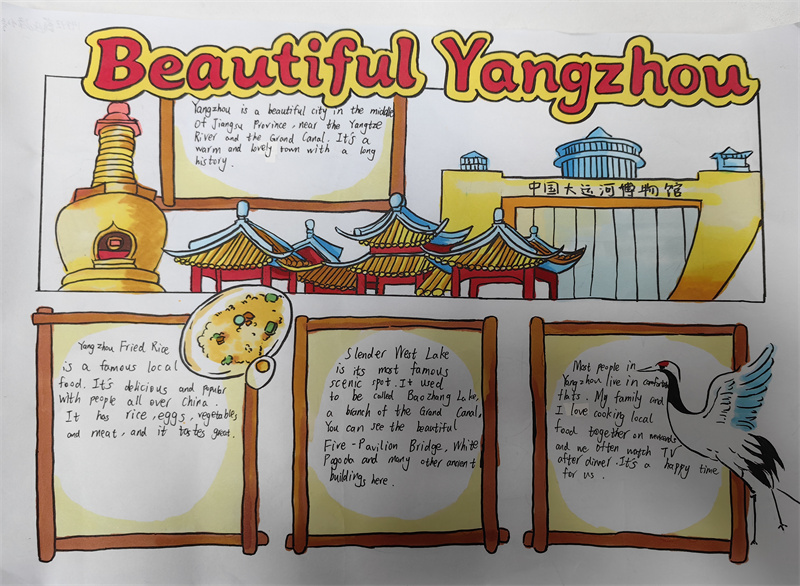 Beautiful Yangzhou
Yangzhou is a beautiful city in the middle
Of Jiangsu Province, near the Yangtze
River and the Grand Canal. It's a
warm and lovely town with a long
history.
中国大运河博物馆
Yangzhou Fried Rice
is a famous local
food. It's delicious and popular
with people all over China.
It has rice, eggs, vegetables
and meat, and it tastes great.
Slender West Lake
is its most famous
scenic spot. It used
to be called Baozhang Lake,
a branch of the Grand Canal,
You can see the beautiful
Five-Pavilion Bridge, White
Pagoda and many other ancient
buildings here.
Most people in
Yangzhou live in comfortable
flats. My family and
I love cooking local
food together on weekends
and we often watch TV
after dinner. It's a happy time
for us.